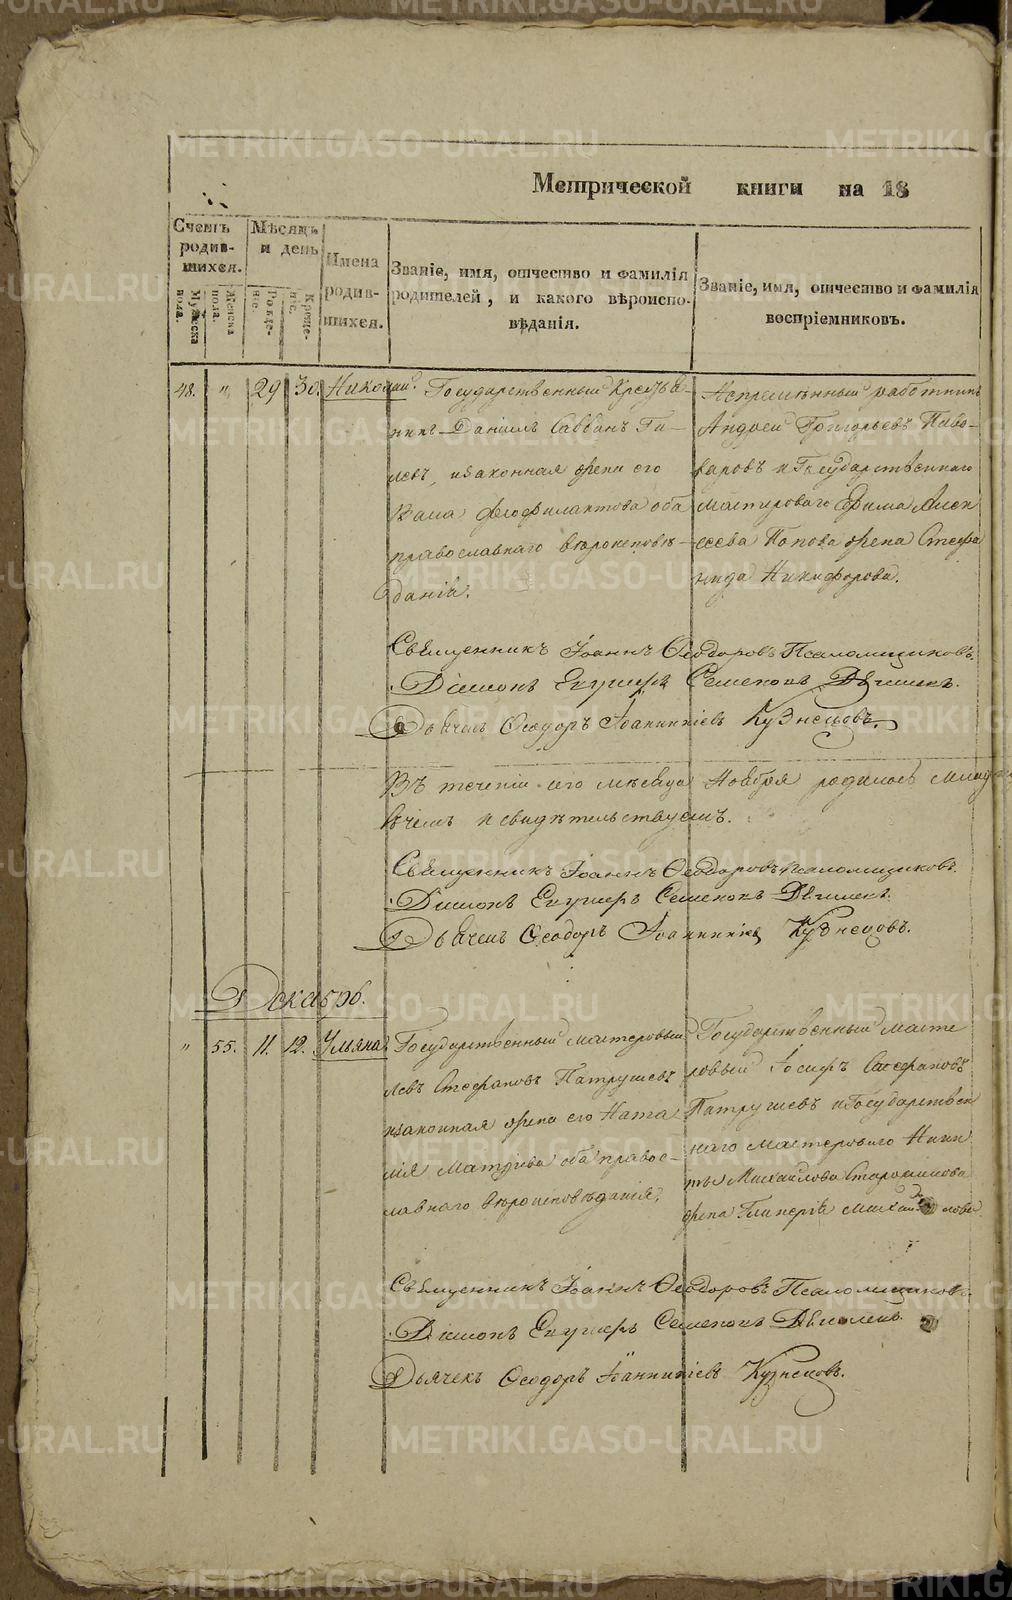 Метрической книги на 18
Счетъ родившихся.
Мужеска пола.
Женска пола.
Мѣсяцъ и день
Рождение.
Крещение.
Имена родившихся.
Званіе, имя, отчество и фамилія родителей, и какого вѣроисповѣданія.
Званіе, имя, отчество и фамилія воспріемниковъ.
48. " 29 30. Николай.
Государственный Крестья-
нинъ Даніилъ Савванъ
изаконная жена его
Феофилактова оба
православнаго вѣроисповѣ-
данія.
работникъ
Андрей Григорьевъ Пиво-
варовъ и Государственнаго
мастероваго Ефима Алек
сеева Попова жена Стефа
нида Никифорова.
Священникъ Іоаннъ Ѳеодоровъ Псаломщиковъ.
Діаконъ Семеновъ
Дьячекъ Ѳеодоръ Іоанникіевъ Кузнецовъ.
Въ теченіи сего мѣсяца Ноября родилось
вчемъ и свидѣтельствуемъ.
Священникъ Іоаннъ Ѳеодоровъ Псаломщиковъ.
Діаконъ Семеновъ
Дьячекъ Ѳеодоръ Іоанникіевъ Кузнецовъ.
Декабрь.
" 55. 11. 12. Ульяна.
Государственный мастеровый
Левъ Стефановъ Патрушевъ
изаконная жена его Ната
лія Матдѣева оба правос-
лавнаго вѣроисповѣданія,
Государственный масте
ровый Іосифъ Стефановъ
Патрушевъ и Государствен
наго мастероваго Ники
ты Михайлова
жена Гликерія
Священникъ Іоаннъ Ѳеодоровъ Псаломщиковъ.
Діаконъ Семеновъ
Дьячекъ Ѳеодоръ Іоанникіевъ Кузнецовъ.
METRIKI.GASO-URAL.RU